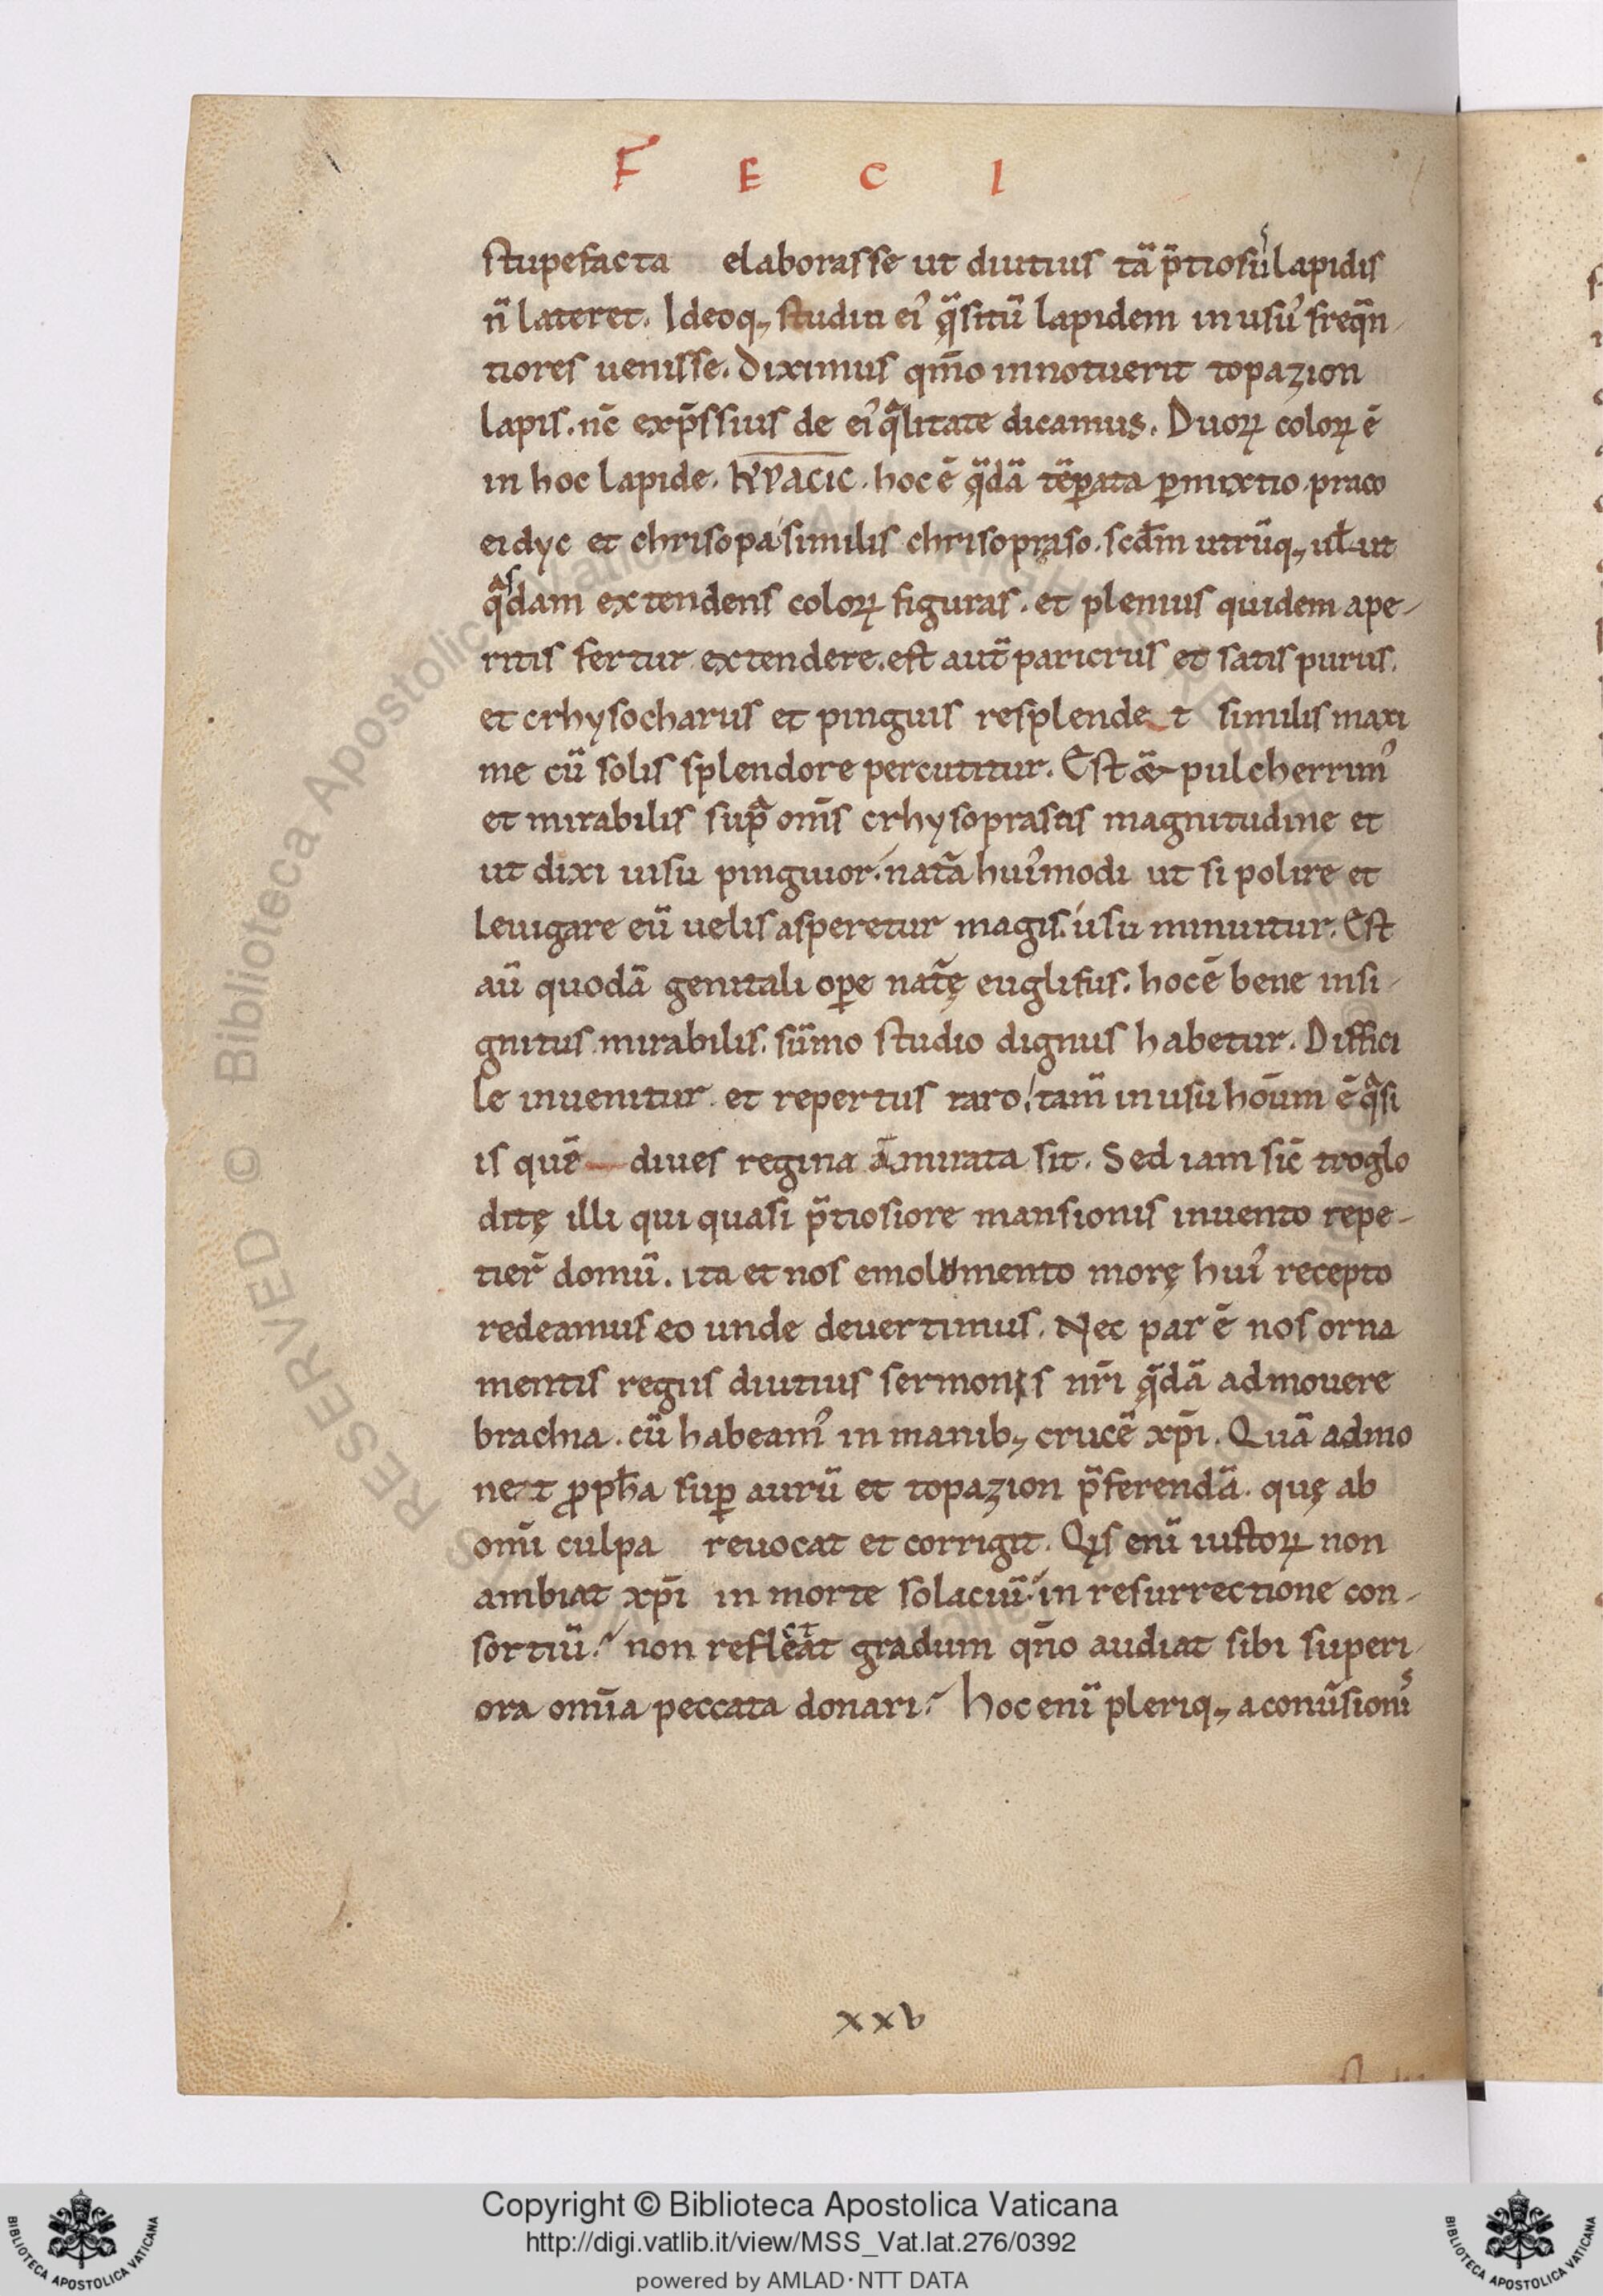 F E C I
stupefacta elaborasse ut diutius tā p̄tiosū lapidis
n̄ lateret. Ideoq; studiu ei' q̄sitū lapidem in usu' freq̄n-
tiores uenisse. Diximus qm̄o innotuerit topazion
lapis. nc̄ exp̄ssius de ei' qͣlitate dicamus. Duoꝝ coloꝝ ē
in hoc lapide. hoc ē q̄dā tēꝑata ꝑmixtio praco
eidyc et chrisopa similis chrisopraso. scd̄m utrūq; ul̄ ut
qͣsdam extendens coloꝝ figuras. et plenius quidem ape-
ritis fertur extendere. est aut̄ paricrus et satis purus.
et crhysocharus et pinguis resplendet similis maxi
me cū solis splendore percutitur. Est pulcherrim'
et mirabilis supͣ om̄s crhysoprassus magnitudine et
ut dixi uisu pinguior. nat̄a hui'modi ut si polire et
leuigare eū uelis asperetur magis. usu minuitur. Est
aū quodā genitali oꝑe nat̄ę euglifus. hoc ē bene insi-
gnitus mirabilis. sūmo studio dignus habetur. Diffici
le inuenitur et repertus raro. tam̄ in usu hoūm ē qͣsi
is quē diues regina āmirata sit. Sed iam sic̄ troglo
ditę illi qui quasi p̄tiosiore mansionis inuento repe-
tier̄ domū. ita et nos emolomento morę hui' recepto
redeamus eo unde deuertimus. Nec par ē nos orna
mentis regiis diutius sermonis nr̄i q̄dā admouere
brachia. cū habeam' in manib; crucē xp̄i. Quā admo
net ꝓph̄a suꝑ aurū et topazion p̄ferendā. quę ab
om̄i culpa reuocat et corrigit. Qis enī iustoꝝ non
ambiat xp̄i in morte solaciū. in resurrectione con-
sortiū. non reflectat gradum qn̄o audiat sibi superi
ora om̄ia peccata donari. Hoc enī pleriq; a conūsionis
xxv
Copyright © Biblioteca Apostolica Vaticana
http://digi.vatlib.it/view/MSS_Vat.lat.276/0392
powered by AMLAD·NTT DATA